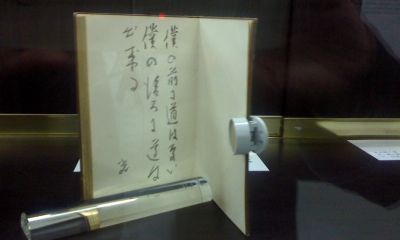 僕の前に道はない
僕の後ろに道は
出来る
光